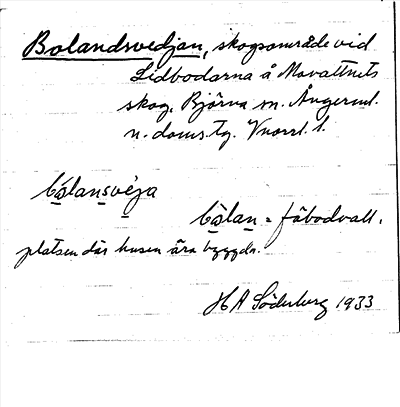 Bolandsvedjan, skogsområde vid
Lidbodarna å Movattnets
skog, Björna sn. Ångerml.
n. doms.tg. Vnorrl. l.
bɷ́lansvèja
bɷ̀lan = fäbodvall,
platsen där husen äro byggda.
H A Söderberg 1933